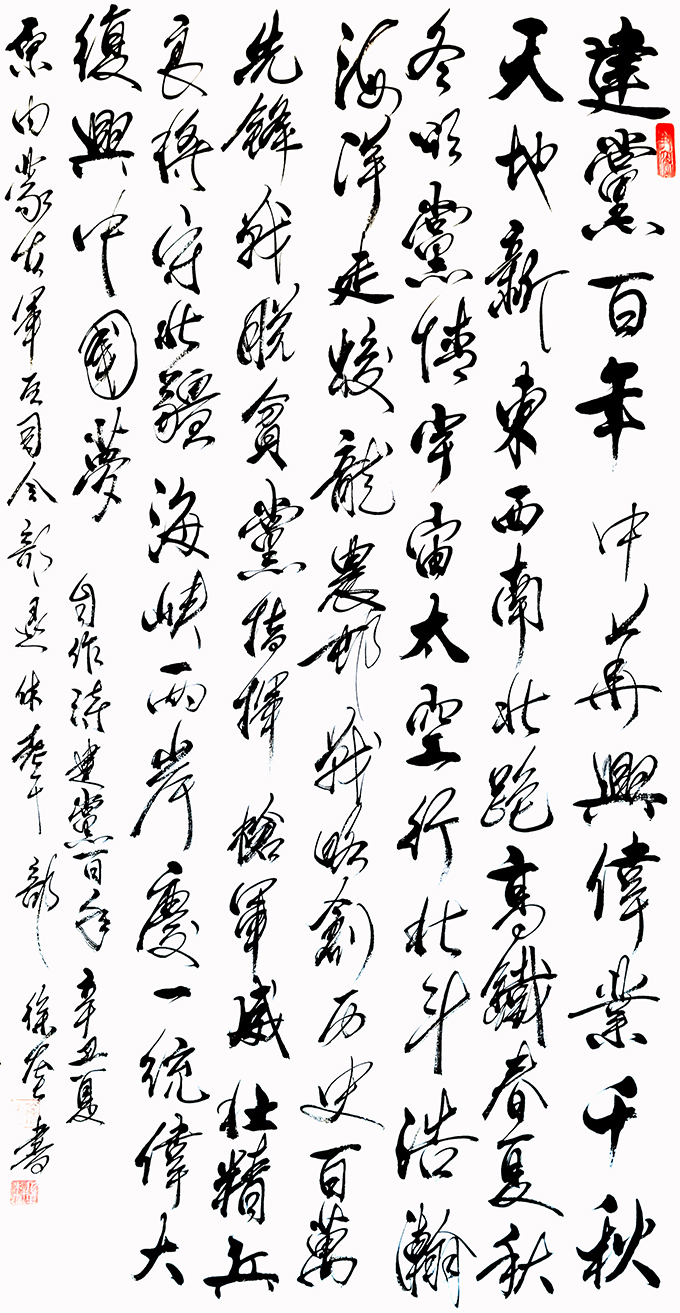 建黨百年中華興偉業千秋
天地新東西南北跑高鐵春夏秋
冬明黨情宇宙太空行北斗浩瀚
海洋走蛟龍農邨战略創历史百萬
先鋒战脱貧黨指揮槍軍威壮精兵
良将守北疆海峡两岸慶一统偉大
復興中國夢 自作詩建黨百年 辛丑夏
原内蒙古軍区司令部退休幹部 徐 書